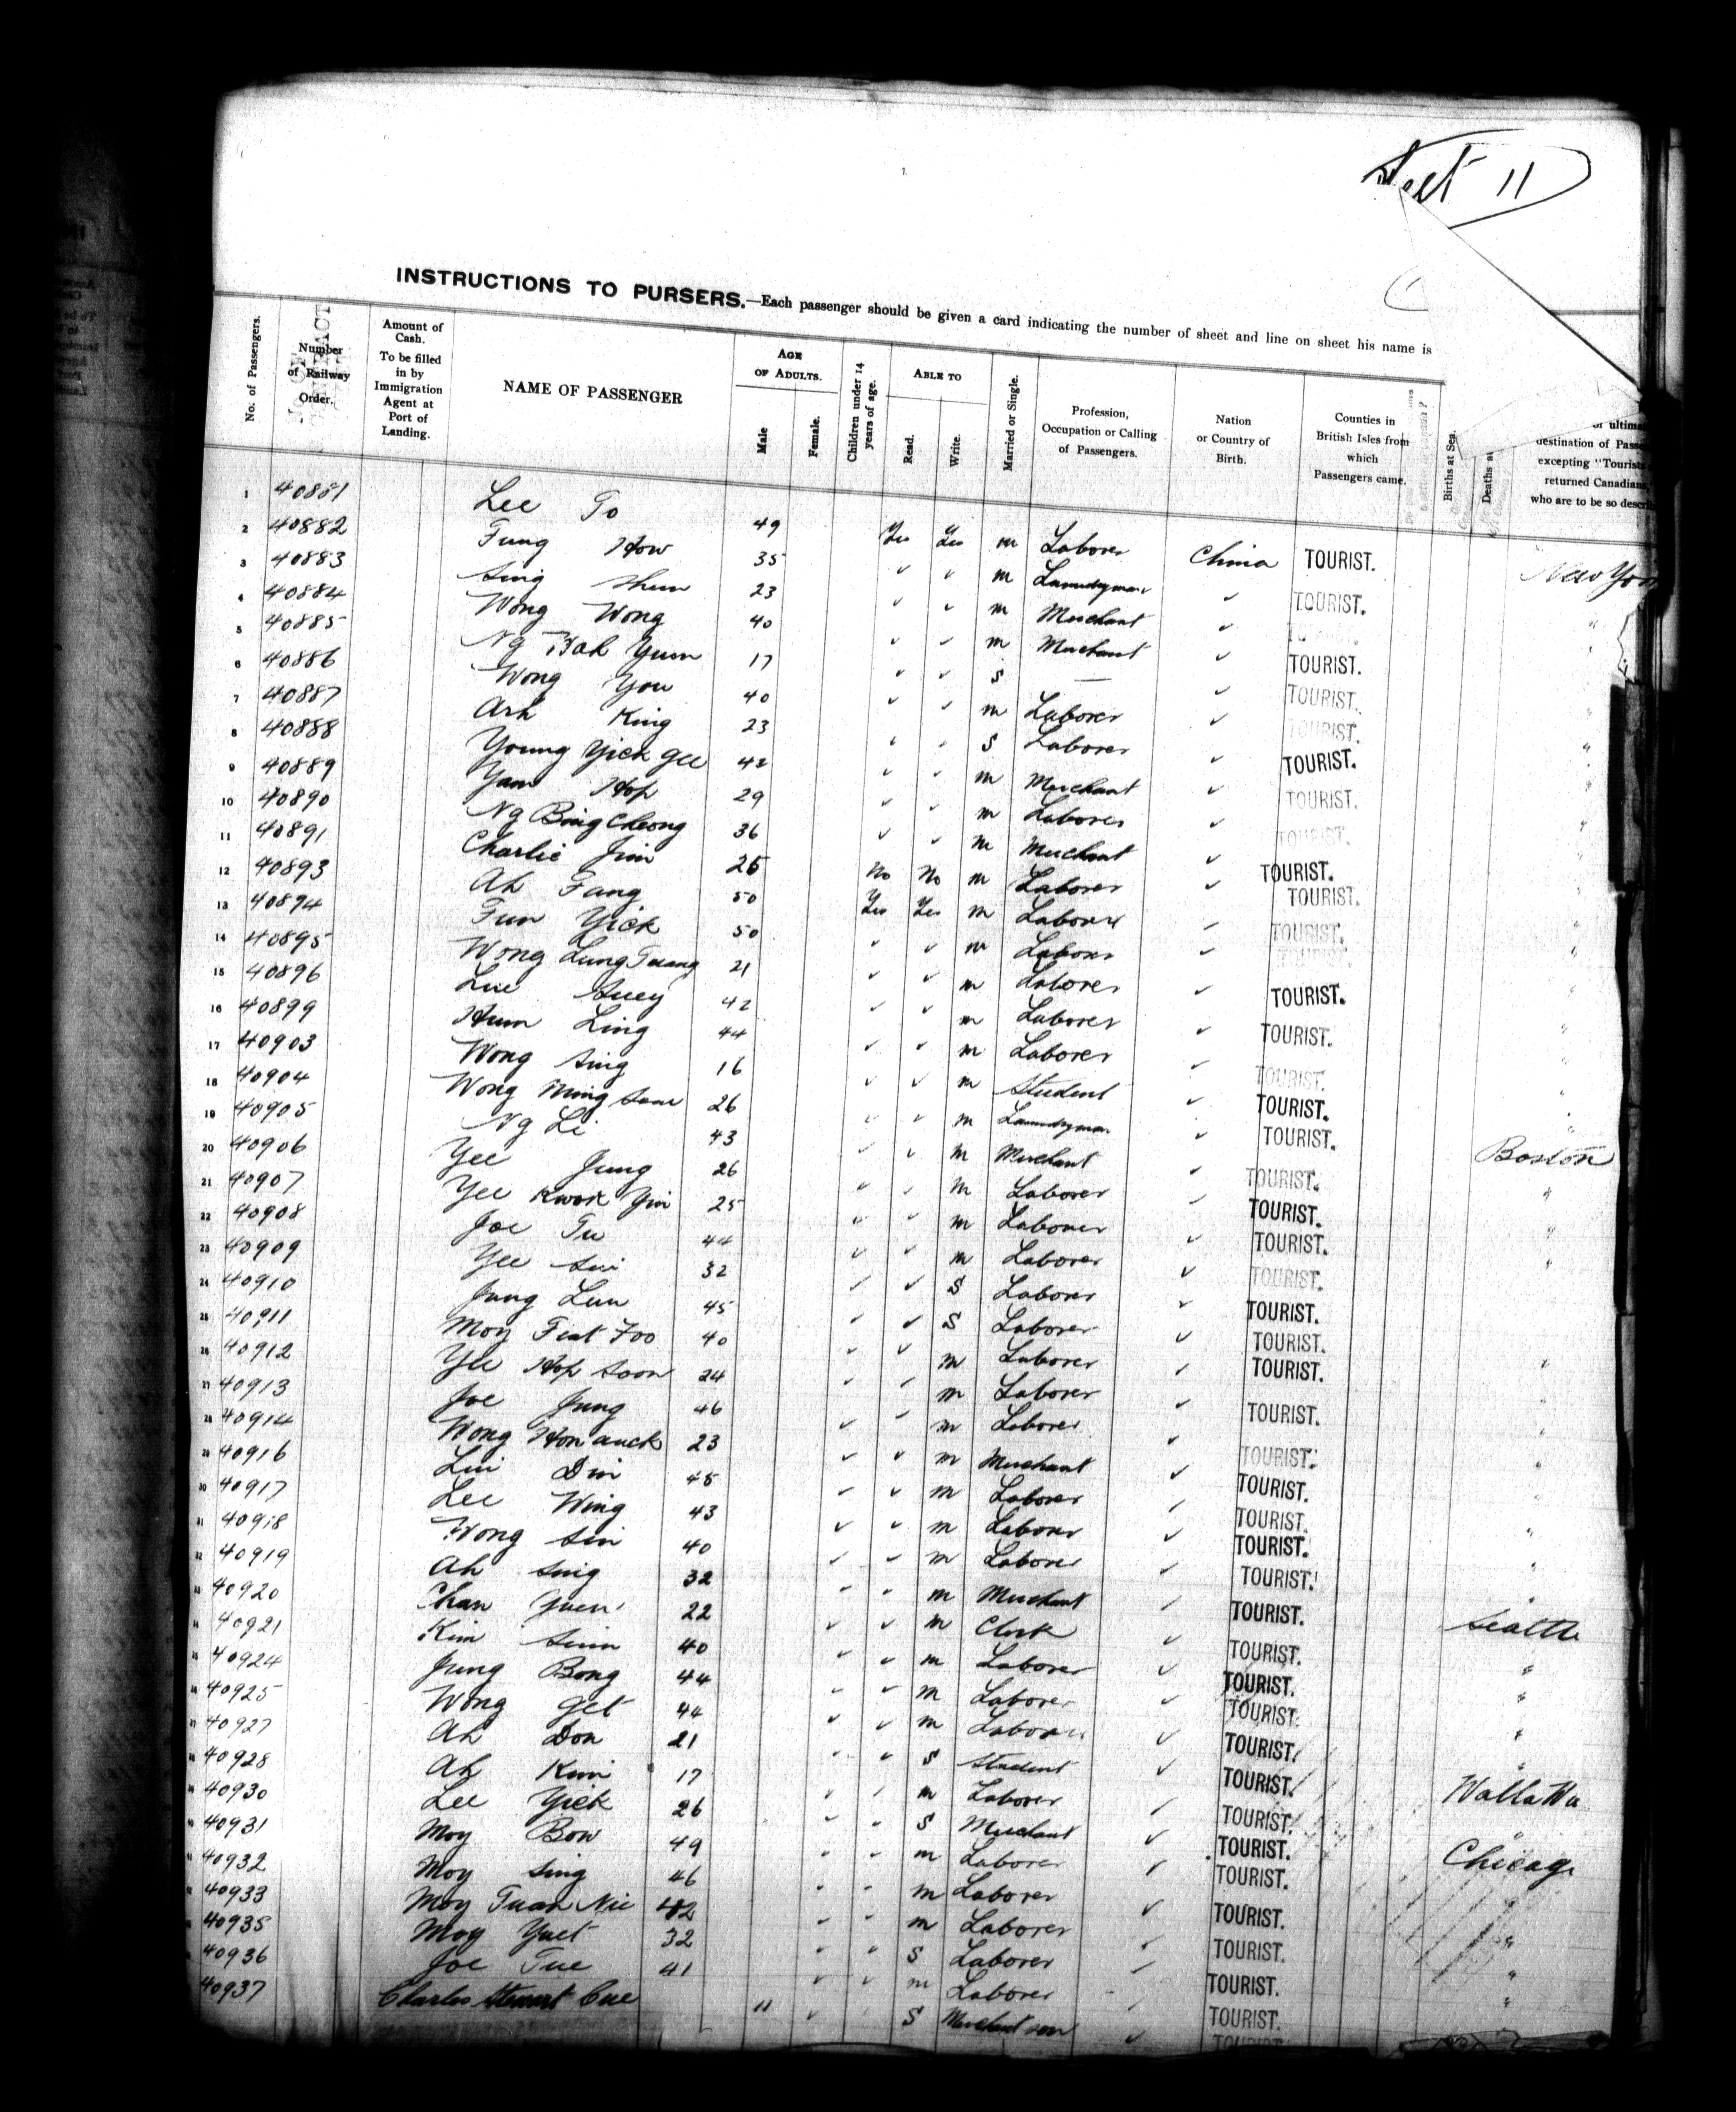 Sheet 11
INSTRUCTIONS TO PURSERS.—Each passenger should be given a card indicating the number of sheet and line on sheet his name is
No. of Passengers. Number of Railway Order. Amount of Cash. To be filled in by Immigration Agent at Port of Landing. NAME OF PASSENGER AGE OF ADULTS. Male Female. Children under 14 years of age. ABLE TO Read. Write. Married or Single. Profession, Occupation or Calling of Passengers. Nation or Country of Birth. Counties in British Isles from which Passengers came. Births at Sea. Deaths at destination of excepting "Tourists returned Canadians who are to be so
1 40881 Lee To 49 Yes Yes m Laborer China TOURIST. New York
2 40882 Fung How 35 ✓ ✓ m Laundryman ✓ TOURIST. "
3 40883 Sing Shun 23 ✓ ✓ m Merchant ✓ "
4 40884 Wong Wong 40 ✓ ✓ m Merchant ✓ TOURIST.
5 40885 Ng Bak Yum 17 ✓ ✓ S — ✓ TOURIST. "
6 40886 Wong You 40 ✓ ✓ m Laborer ✓ TOURIST.
7 40887 Arh King 23 ✓ ✓ S Laborer ✓ TOURIST. "
8 40888 Young Yick Gee 42 ✓ ✓ m Merchant ✓ TOURIST. "
9 40889 Yam Hop 29 ✓ ✓ m Laborer ✓ TOURIST. "
10 40890 Ng Bing Cheong 36 ✓ ✓ m Merchant ✓ TOURIST.
11 40891 Charlie Jim 25 No No m Laborer ✓ TOURIST. "
12 40893 Ah Fang 50 Yes Yes m Laborer ✓ TOURIST. "
13 40894 Fun Yick 50 ✓ ✓ m Laborer ✓ TOURIST.
14 40895 Wong Lung 21 ✓ ✓ m Laborer ✓ TOURIST. "
15 40896 Suey 42 ✓ ✓ m Laborer ✓ TOURIST. "
16 40899 Hum Ling 44 ✓ ✓ m Laborer ✓ TOURIST. "
17 40903 Wong Sing 16 ✓ ✓ m Student ✓ TOURIST. "
18 40904 Wong Ming 26 ✓ ✓ m Laundryman ✓ TOURIST. "
19 40905 Ng Li 43 ✓ ✓ m Merchant ✓ TOURIST. Boston
20 40906 Yee Jung 26 ✓ ✓ m Laborer ✓ TOURIST. "
21 40907 Yee Kwok Yin 25 ✓ ✓ m Laborer ✓ TOURIST. "
22 40908 Joe Tu 44 ✓ ✓ m Laborer ✓ TOURIST. "
23 40909 Yee 32 ✓ ✓ S Laborer ✓ TOURIST.
24 40910 Jung Lun 45 ✓ ✓ S Laborer ✓ TOURIST.
25 40911 Moy Fiat Foo 40 ✓ ✓ m Laborer ✓ TOURIST. "
26 40912 Yee Hop Soon 24 ✓ ✓ m Laborer ✓ TOURIST. "
27 40913 Joe Jung 46 ✓ ✓ m Laborer ✓ TOURIST. "
28 40914 Wong Hon 23 ✓ ✓ m Merchant ✓ TOURIST. "
29 40916 Din 45 ✓ ✓ m Laborer ✓ TOURIST. "
30 40917 Lee Wing 43 ✓ ✓ m Laborer ✓ TOURIST. "
31 40918 Wong Sin 40 ✓ ✓ m Laborer ✓ TOURIST. "
32 40919 Ah Sing 32 ✓ ✓ m Merchant ✓ TOURIST. "
33 40920 Chan Yuen 22 ✓ ✓ m Clerk ✓ TOURIST. Seattle
34 40921 Kim 40 ✓ ✓ m Laborer ✓ TOURIST. "
35 40924 Jung Bong 44 ✓ ✓ m Laborer ✓ TOURIST. "
36 40925 Wong Get 44 ✓ ✓ m Laborer ✓ TOURIST. "
37 40927 Ah Don 21 ✓ ✓ S Student ✓ TOURIST. "
38 40928 Ah Kim 17 ✓ ✓ m Laborer ✓ TOURIST. Walla Wa
39 40930 Lee Yick 26 ✓ ✓ S Merchant ✓ TOURIST. "
40 40931 Moy Bow 49 ✓ ✓ m Laborer ✓ TOURIST. Chicago
41 40932 Moy Sing 46 ✓ ✓ m Laborer ✓ TOURIST.
42 40933 Moy Tuan 42 ✓ ✓ m Laborer ✓ TOURIST. "
40935 Moy Yuet 32 ✓ ✓ S Laborer ✓ TOURIST. "
40936 Joe Tue 41 ✓ ✓ m Laborer ✓ TOURIST. "
40937 Charles Stewart Cue 11 ✓ S Merchant son ✓ TOURIST.